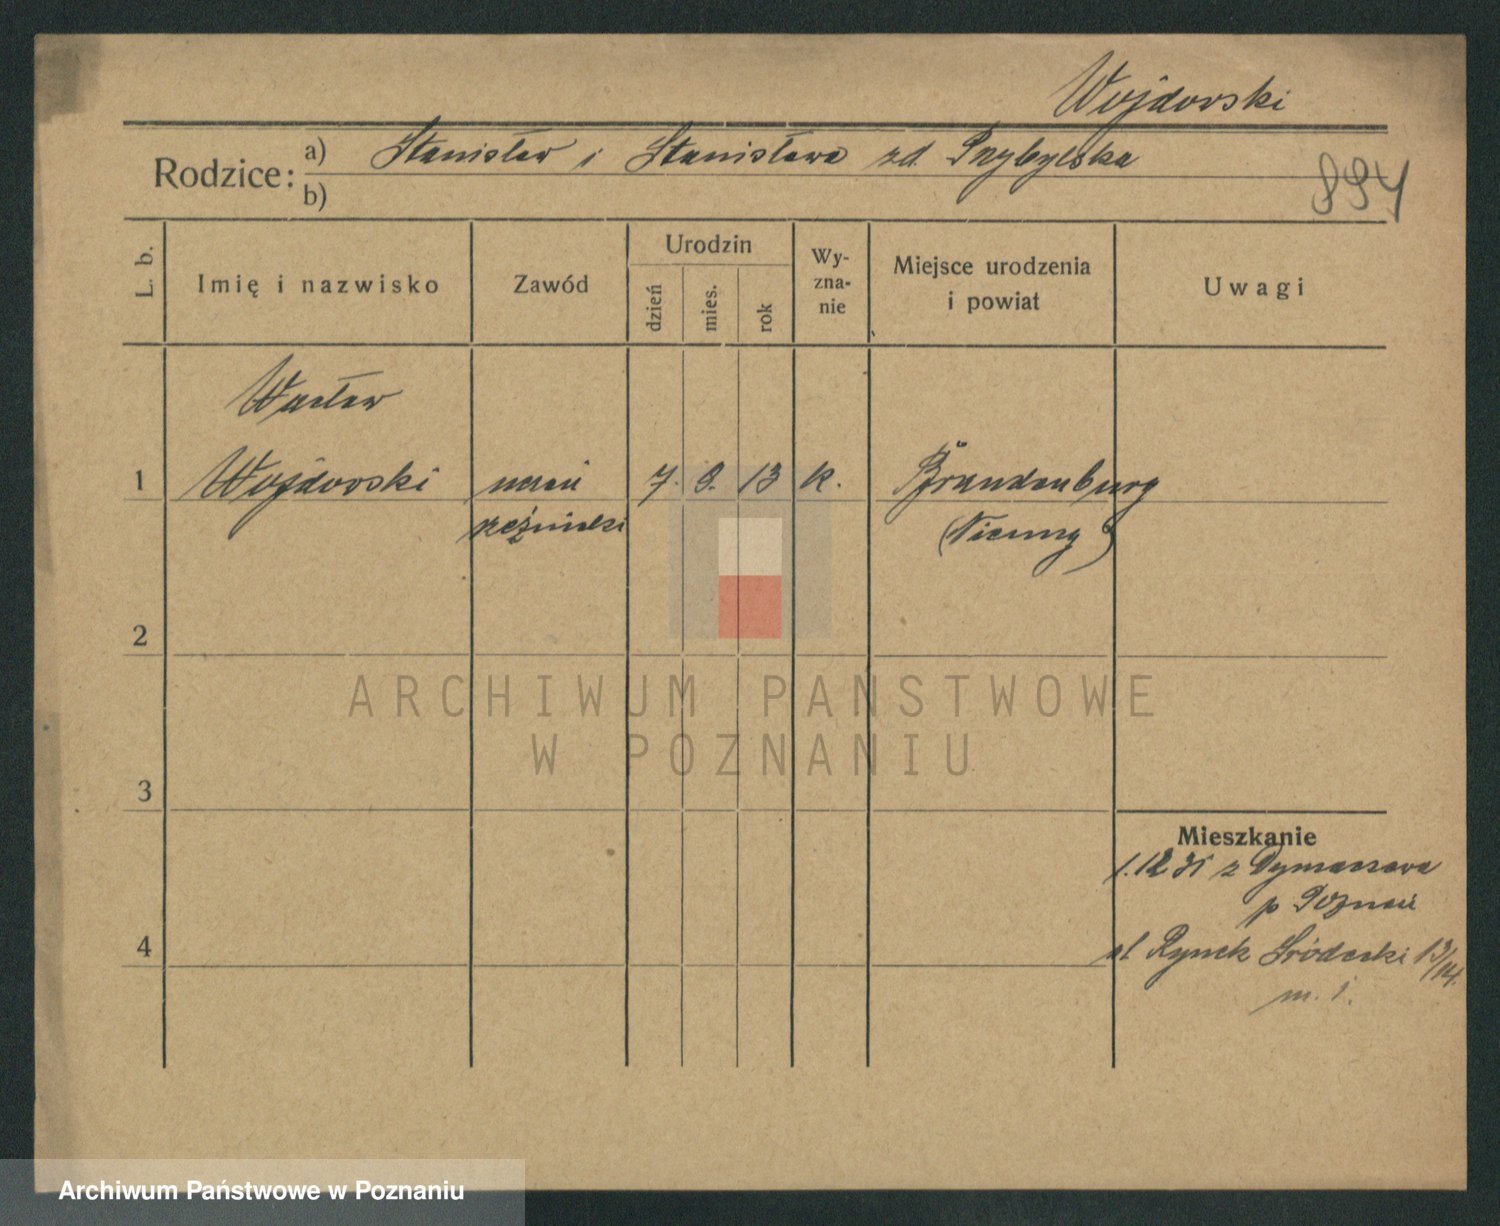 Wojdowski
Rodzice:
a) Stanisław i Stanisława zd. Przybylska
b)
894
L. b.
Imię i nazwisko
Zawód
Urodzin
dzień
mies.
rok
Wy-
zna-
nie
Miejsce urodzenia
i powiat
Uwagi
Wacław
1 Wojdowski uczeń 7. 9. 13 k. Brandenburg
rzeźnicki (Niemcy)
2
ARCHIWUM PAŃSTWOWE
W POZNANIU
3
Mieszkanie
1.12 31 z
p Poznań
4
ul Rynek Śródecki 13/14.
m. 1.
Archiwum Państwowe w Poznaniu